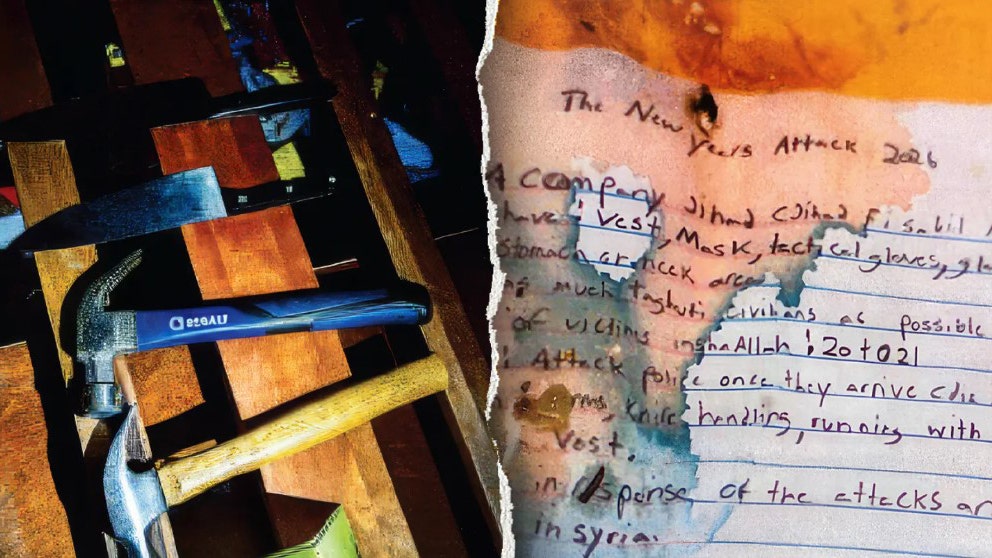 The New Years Attack 2026
A company Jihad (Jihad fi sabil
have : Vest, Mask, tactical gloves,
stomach or neck area
much Taghuti civilians as possible
of victims inshaAllah : 20 to 21
: Attack police once they arrive
Knife handling, running with
Vest.
in response of the attacks
in syria.